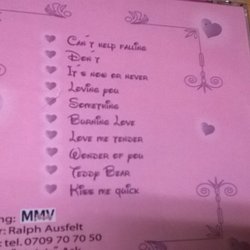 Can't help falling
Don't
It's now or never
Loving you
Something
Burning Love
Love me tender
Wonder of you
Teddy Bear
Kiss me quick
ng: MMV
r: Ralph Ausfelt
tel. 0709 70 70 50